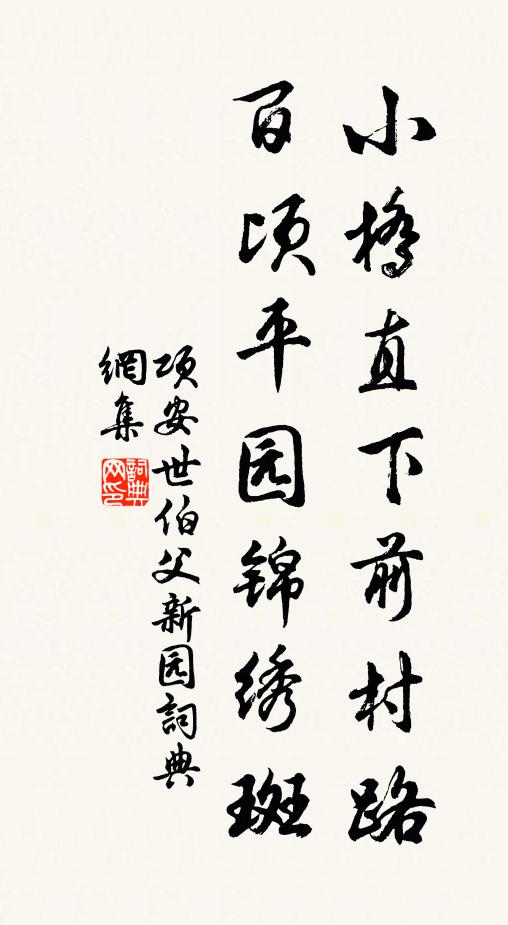 小橋直下前村路
百顷平园锦绣斑
项安世伯父新园詞典
網集
詞典
网印